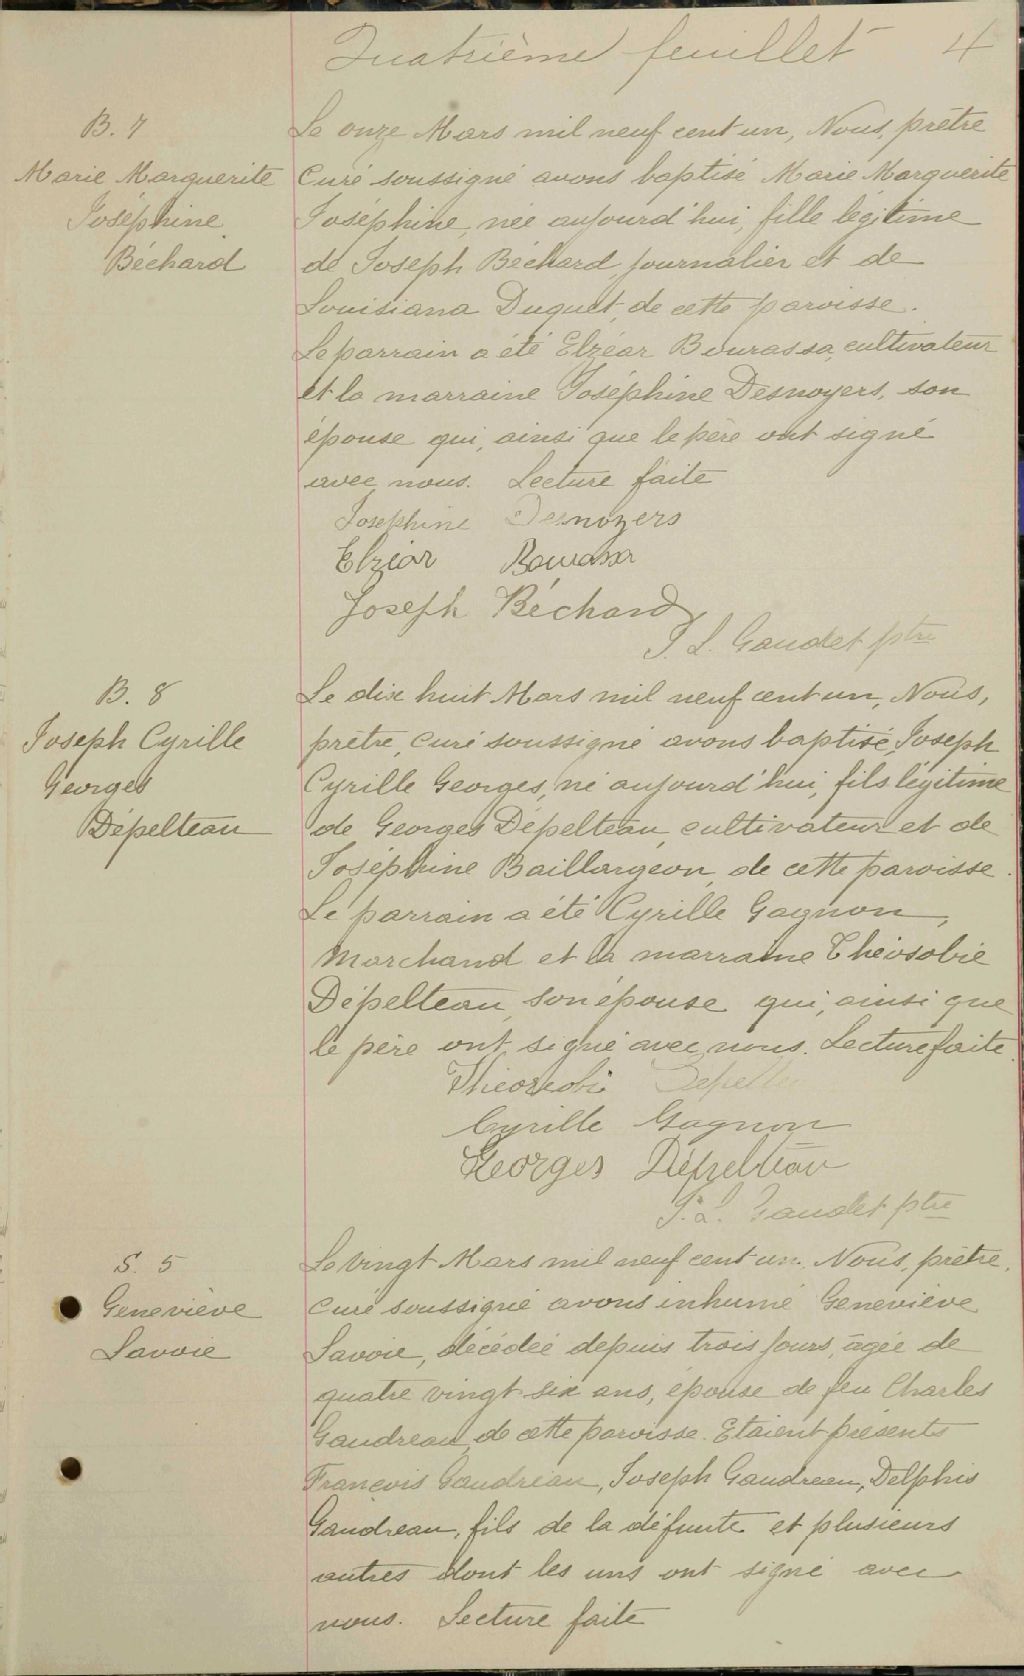 Quatrième feuillet 4
B. 7
Marie Marguerite
Joséphine
Béchard
Le onze Mars mil neuf cent un, Nous, prêtre
Curé soussigné avons baptisé Marie Marguerite
Joséphine, née aujourd'hui, fille légitime
de Joseph Béchard, journalier et de
Louisiana Duquet, de cette paroisse.
Le parrain a été Elzéar Bourassa, cultivateur
et la marraine Joséphine Desnoyers, son
épouse qui, ainsi que le père ont signé
avec nous. Lecture faite
Josephine Desnoyers
Elzéar Bourassa
Joseph Béchard
J. L. Gaudet ptre
B. 8
Joseph Cyrille
Georges
Dépelteau
Le dix huit Mars mil neuf cent un, Nous,
prêtre, curé soussigné avons baptisé, Joseph
Cyrille Georges, né aujourd'hui, fils légitime
de Georges Dépelteau, cultivateur et de
Joséphine Baillargeon, de cette paroisse.
Le parrain a été Cyrille Gagnon,
Marchand et la marraine Théosobie
Dépelteau, son épouse qui, ainsi que
le père ont signé avec nous. Lecture faite.
Cyrille Gagnon
Georges Dépelteau
J. L. Gaudet ptre
S. 5
Geneviève
Savoie
Le vingt Mars mil neuf cent un, Nous, prêtre,
Curé soussigné avons inhumé Geneviève
Savoie, décédée depuis trois jours, âgée de
quatre vingt six ans, épouse de feu Charles
Gaudreau, de cette paroisse. Etaient présents
François Gaudreau, Joseph Gaudreau, Delphis
Gaudreau, fils de la défunte et plusieurs
autres dont les uns ont signé avec
nous. Lecture faite